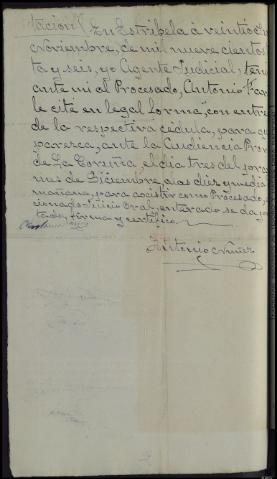 tacion/ En Estribela á veintio
Noviembre, de mil nueve cientos
ta y seis, yo Agente Judicial, ten
ante mi al Procesado, Antonio
le cité en legal forma, con entre
de la respectiva cédula, para q
parezca, ante la Audiencia Prov
de La Coruña, el dia tres del proxi
mes de Diciembre, a las diez y media
mañana, para asistir como Procesado,
cionado Juicio Oral, enterado se da p
tado, firma y certifico
Antonio Nuñez